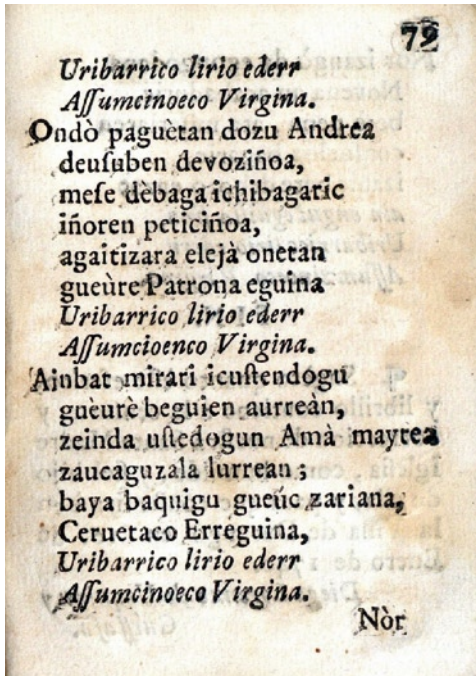 79
Uribarrico lirio ederr
Aſſumcinoeco Virgina.
Ondò paguètan dozu Andrea
deuſuben devoziñoa,
meſe dèbaga ichibagaric
iñoren peticiñoa,
agaitizara elejà onetan
gueùre Patrona eguina
Uribarrico lirio ederr
Aſſumcioenco Virgina.
Ainbat mirari icuſtendogu
guèurè beguien aurreàn,
zeinda uſtedogun Amà maytea
zaucaguzala lurrean ;
baya baquigu gueúc zariana,
Ceruetaco Erreguina,
Uribarrico lirio ederr
Aſſumcinoeco Virgina.
Nòr